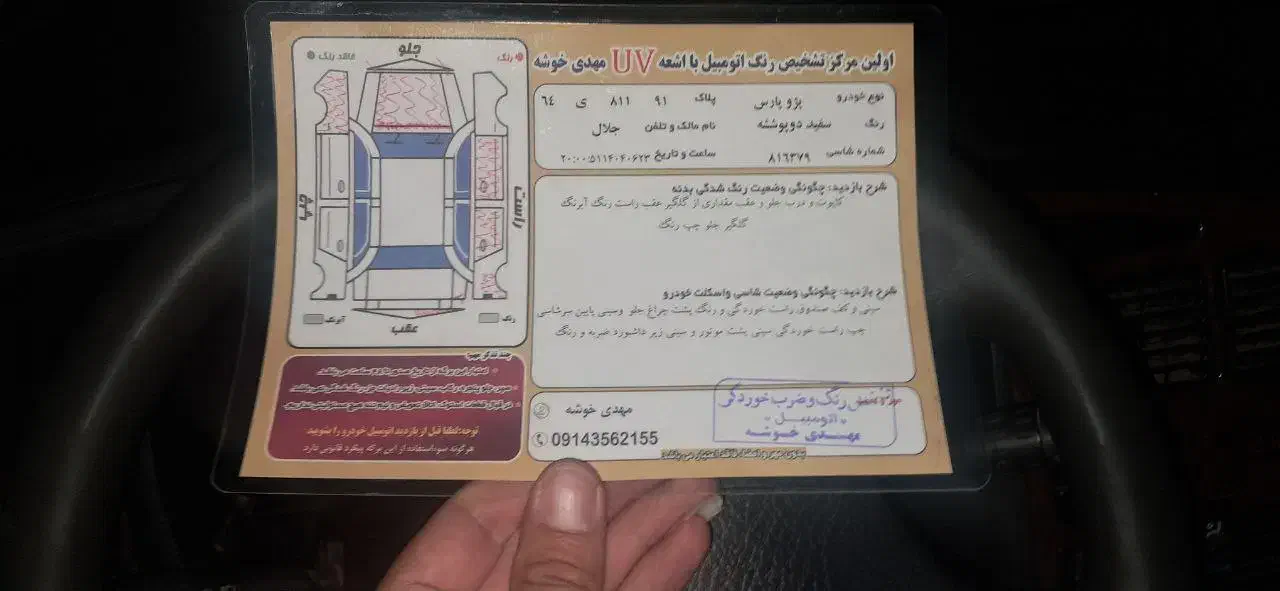 اولین مرکز تشخیص رنگ اتومبیل با اشعه UV مهدی خوشه
نوع خودرو پژو پارس پلاک ۹۱ ۸۱۱ ی ٦٤
رنگ سفید دوپوششه نام مالک و تلفن جلال
شماره شاسی ۸۱۶۳۷۹ ساعت و تاریخ
شرح بازدید: چگونگی وضعیت رنگ شدگی بدنه
کاپوت و درب جلو و عقب مقداری از گلگیر عقب راست رنگ آبرنگ
گلگیر جلو چپ رنگ
شرح بازدید: چگونگی وضعیت شاسی واسکلت خودرو
سینی و کف صندوق راست خورد گی و رنگ پشت چراغ جلو وسینی پایین سرشاسی
چپ راست خورد گی سینی پشت موتور و سینی زیر داشبورد ضربه و رنگ
مهدی خوشه
09143562155
تشخیص رنگ و ضرب خوردگی
اتومبیل
مهدی خوشه
بدون مهر و امضاء فاقد اعتبار می باشد
رنگ
فاقد رنگ
جلو
راست
چپ
عقب
رنگ
آبرنگ
چند تذکر مهم:
توجه: لطفا قبل از بازدید اتومبیل خودرو را بشویید
هرگونه سوءاستفاده از این برگه پیگرد قانونی دارد